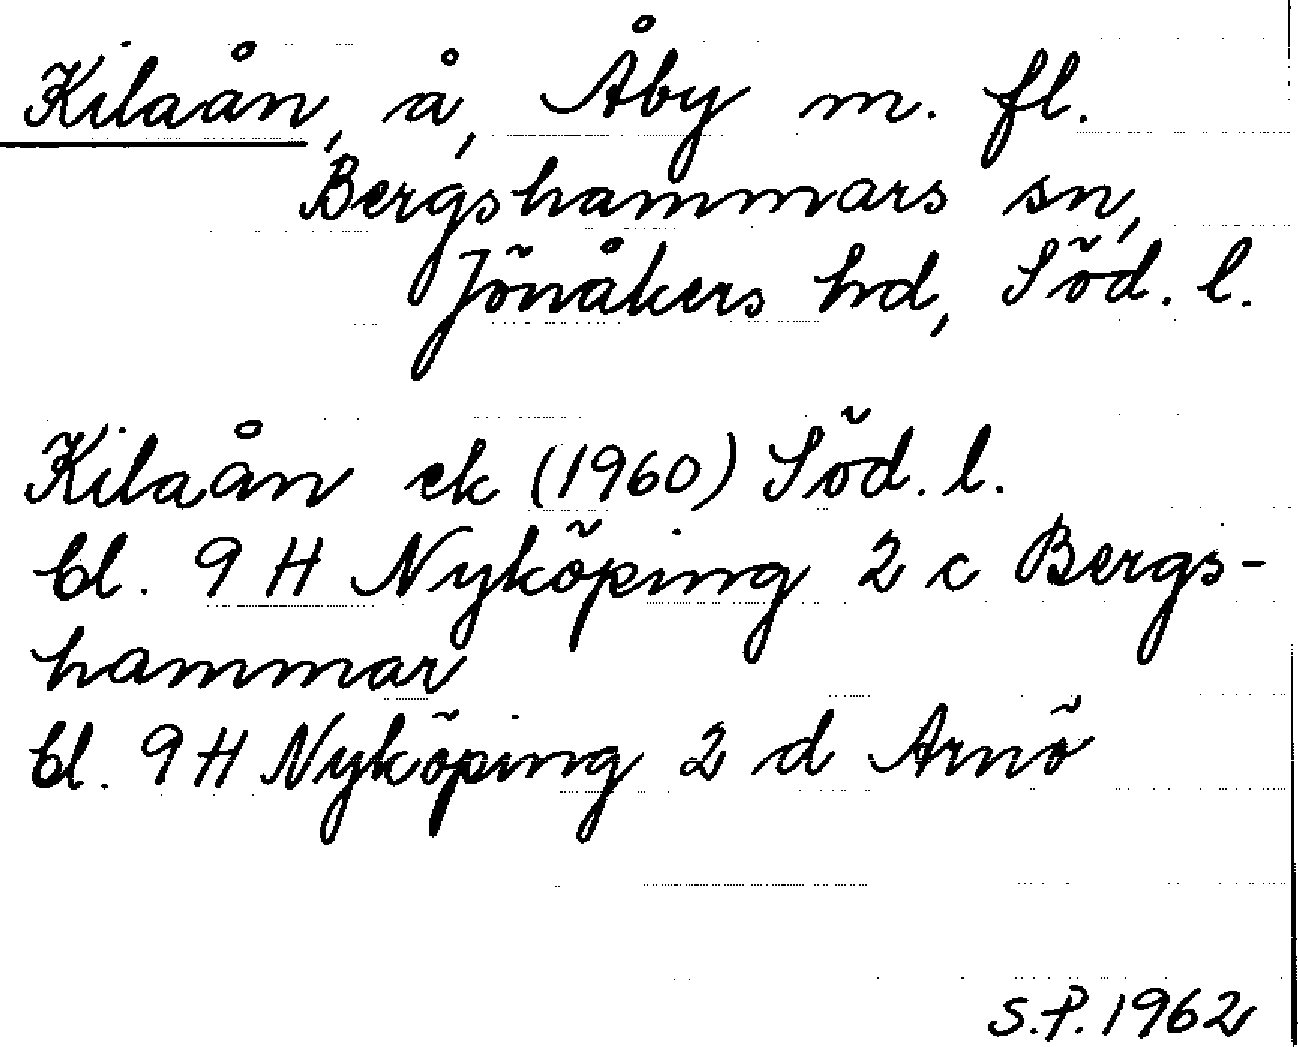 Kilaån, å, Åby m. fl.
Bergshammars sn,
Jönåkers hd, Söd. l.
Kilaån ek (1960) Söd. l.
bl. 9 H Nyköping 2 c Bergs-
hammar
bl. 9 H Nyköping 2 d Arnö
S.P. 1962